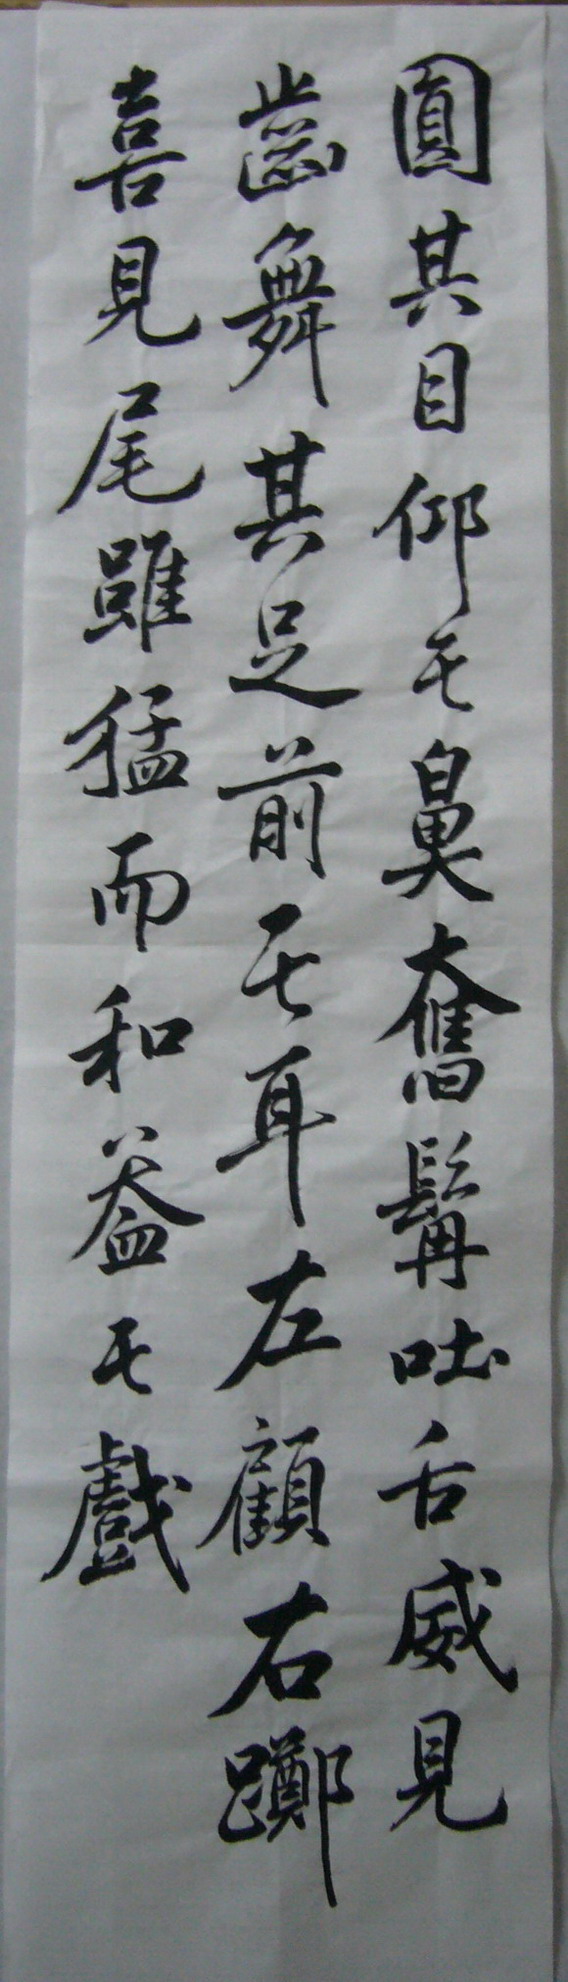 圓其目仰其鼻奮髯吐舌威見
齒舞其足前其耳左顧右躑
喜見尾雖猛而和益其戲